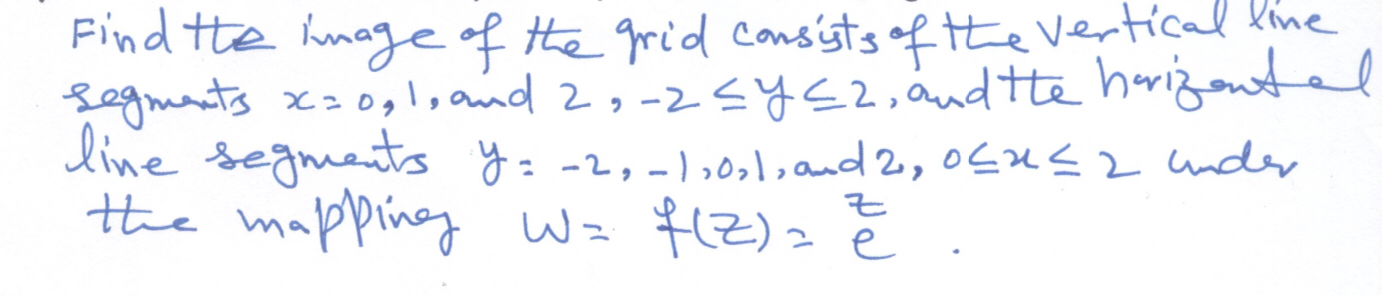 Find the image of the grid consists of the vertical line
segments x=0,1,and 2, -2≤y≤2, and the horizontal
line segments y= -2,-1,0,1,and 2, 0≤x≤2 under
the mapping w= f(z)= e^z.